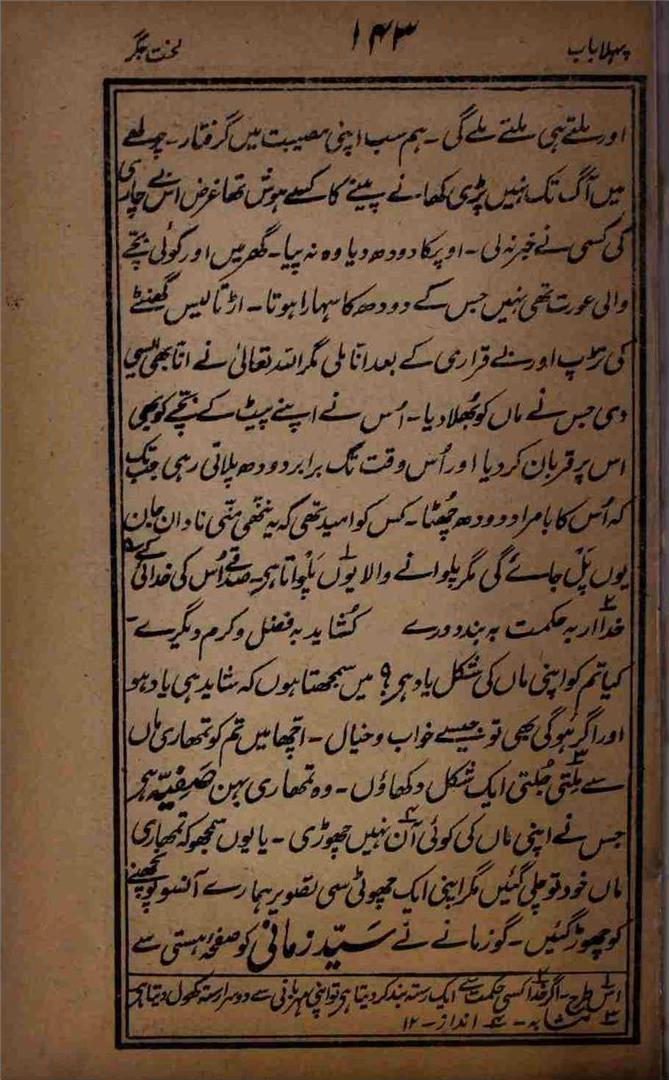 پہلا باب ۱۴۳ لخت جگر
اور ملتے ہی ملتے ملے گی۔ ہم سب اپنی مصیبت میں گرفتار۔ چولھے
میں آگ تک نہیں پڑی کھانے پینے کا کسے ہوش تھا غرض اس بے چاری
کی کسی نے خبر نہ لی۔ اوپر کا دودھ دیا وہ نہ پیا۔ گھر میں اور کوئی بچے
والی عورت تھی نہیں جس کے دودھ کا سہارا ہوتا۔ اڑتالیس گھنٹے
کی تڑپ اور بے قراری کے بعد انا ملی مگر اللہ تعالیٰ نے انا بھی ایسی
دی جس نے ماں کو بھلا دیا۔ اُس نے اپنے پیٹ کے بچے کو بھی
اس پر قربان کر دیا اور اُس وقت تک برابر دودھ پلاتی رہی جب تک
کہ اُس کا بامراد دودھ چُھٹا۔ کس کو امید تھی کہ یہ ننھی منی نادان جان
یوں پَل جائے گی مگر پلوانے والا یوں ۱ پَلواتا ہی۔ صدقے اُس کی خدائی کے
خدا ار بہ حکمت بہ بندد درے ۲ کُشاید بہ فضل و کرم دیگرے
کیا تم کو اپنی ماں کی شکل یاد ہی؟ میں سمجھتا ہوں کہ شاید ہی یاد ہو
اور اگر ہوگی بھی تو جیسے خواب و خیال۔ اچھا میں تم کو تمھاری ماں
سے مِلتی جُلتی ۳ ایک شکل دکھاؤں۔ وہ تمھاری بہن صَفِیّہ ہی
جس نے اپنی ماں کی کوئی آن ۴ نہیں چھوڑی۔ یا یوں سمجھو کہ تمھاری
ماں خود تو چلی گئیں مگر اپنی ایک چھوٹی سی تصویر ہمارے آنسو پوچھنے
کو چھوڑ گئیں۔ گو زمانے نے سیّد زمانی کو صفحۂ ہستی سے
۱ اس طرح۔ ۲ اگر خدا کسی حکمت سے ایک رستہ بند کر دیتا ہی تو اپنی مہربانی سے دوسرا رستہ کھول دیتا ہی
۳ مشابہ۔ ۴ انداز۔ ۱۲